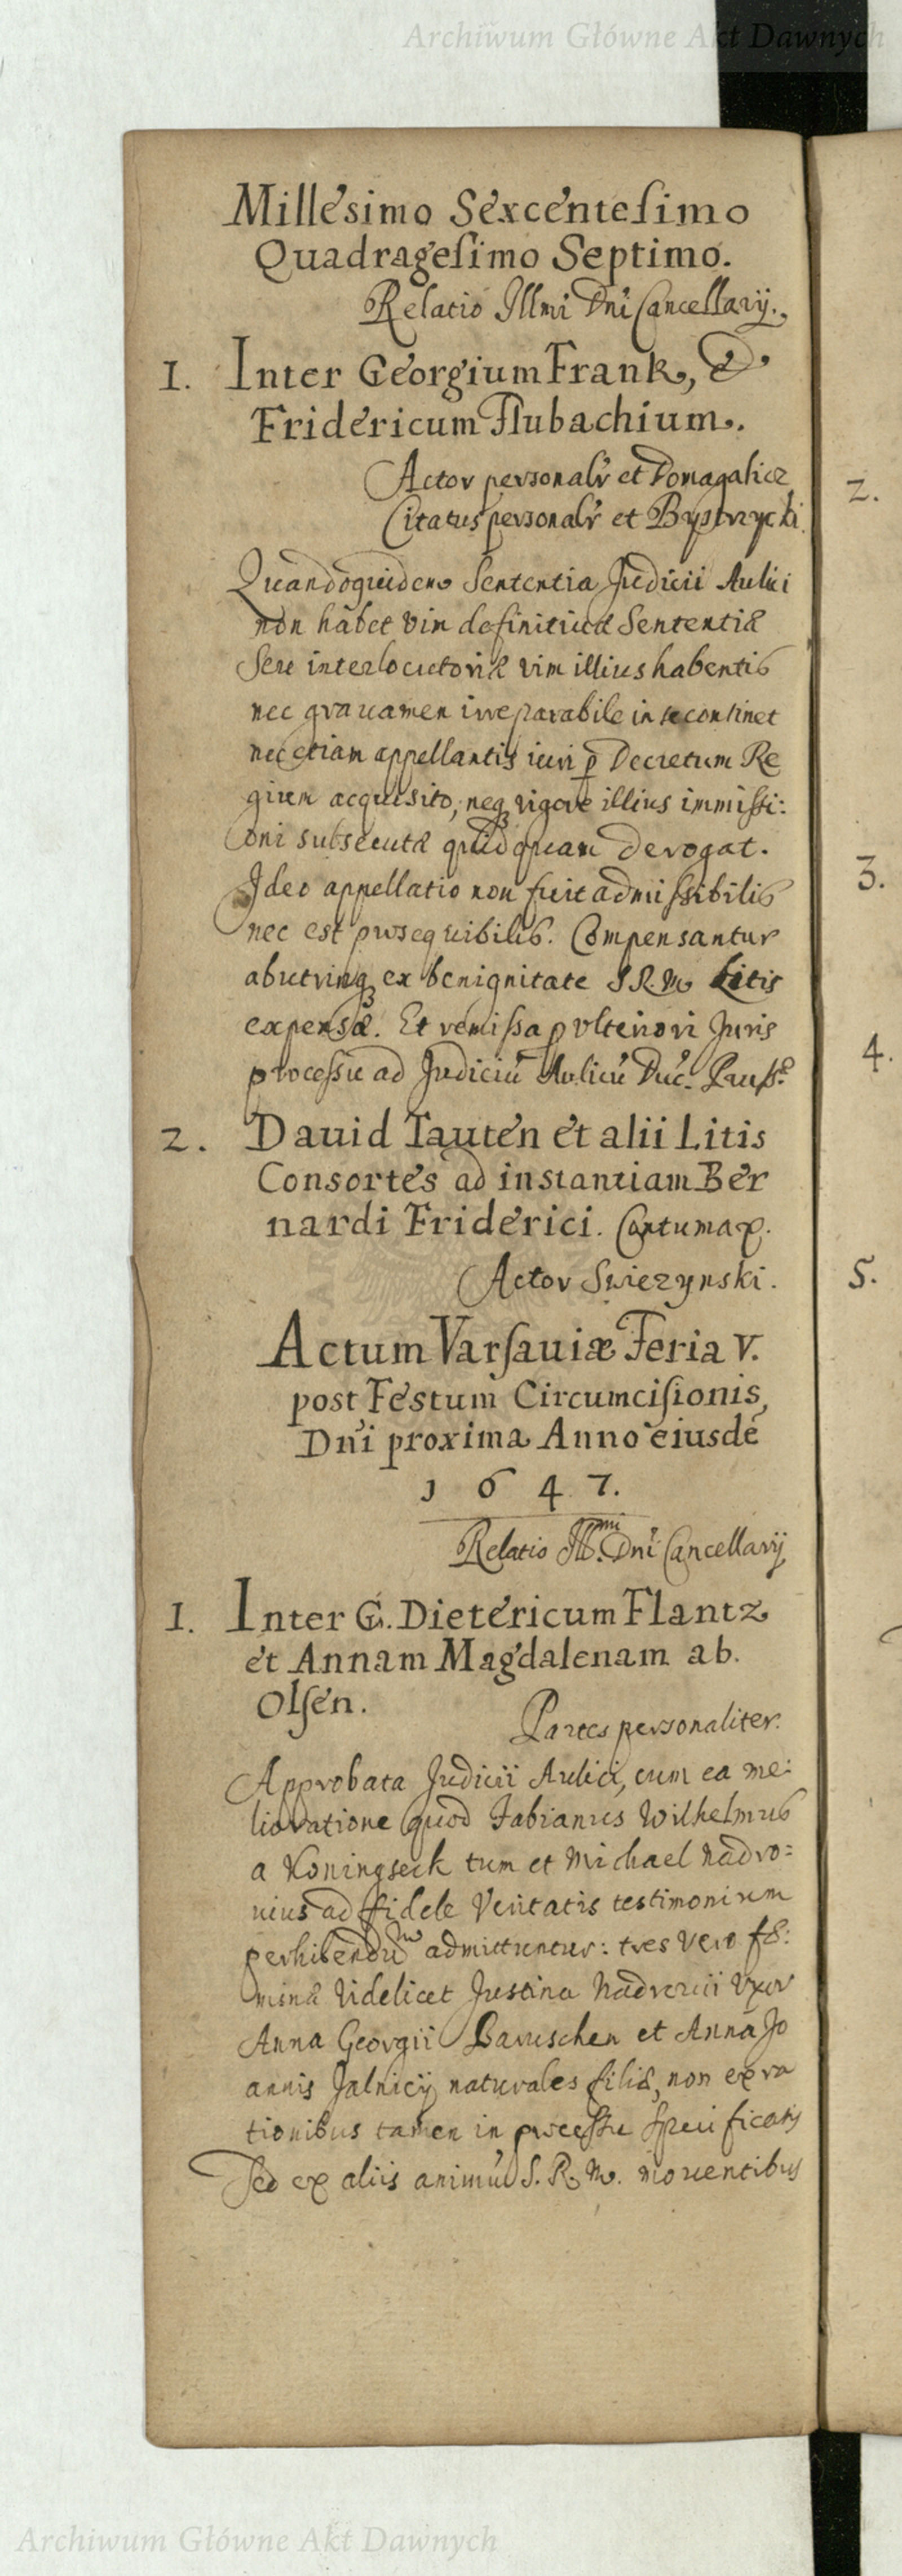 Archiwum Główne Akt Dawnych
Millesimo Sexcentesimo
Quadragesimo Septimo.
Relatio Illmi Dni Cancellarij.
1. Inter Georgium Frank, &
Fridericum Flubachium.
Actor personalr et Domagalicz
Citatus personalr et Bystrzycki
Quandoquidem Sententia Judicii Aulici
non habet vim definitiuæ Sententiæ
Seu interlocutoriæ vim illius habentis
nec grauamen irreparabile in se continet
nec etiam appellantis iuri p Decretum Re
gium acquisito, neq vigore illius immissi:
oni subsecutæ quidquam derogat.
Ideo appellatio non fuit admissibilis
nec est prosequibilis. Compensantur
abutrinq ex benignitate S R. M Litis
expensæ. Et remissa p vlteriori Juris
processu ad Judiciu Aulicu Duc. Pruss.
2. Dauid Tauten et alii Litis
Consortes ad instantiam Ber
nardi Friderici. Contumax.
Actor Swiezynski.
Actum Varsauiæ Feria V.
post Festum Circumcisionis
Dni proxima Anno eiusde
1647.
Relatio Ill.mi Dni Cancellarij
1. Inter G. Dietericum Flantz
et Annam Magdalenam ab.
Olsen.
Partes personaliter.
Approbata Judicii Aulici, cum ea me:
lioratione quod Fabianus Wilhelmus
a Koningseck tum et Michael Nadro:
uius ad fidele Veritatis testimonium
perhibendu admittuntur: tres vero fæ:
minæ Videlicet Justina Vxor
Anna Georgii Baruschen et Anna Jo
annis Jalnicij naturales filiæ, non ex ra
tionibus tamen in processu specificatis
Sed ex aliis animu S. R. M. mouentibus
2.
3.
4.
5.
Archiwum Główne Akt Dawnych